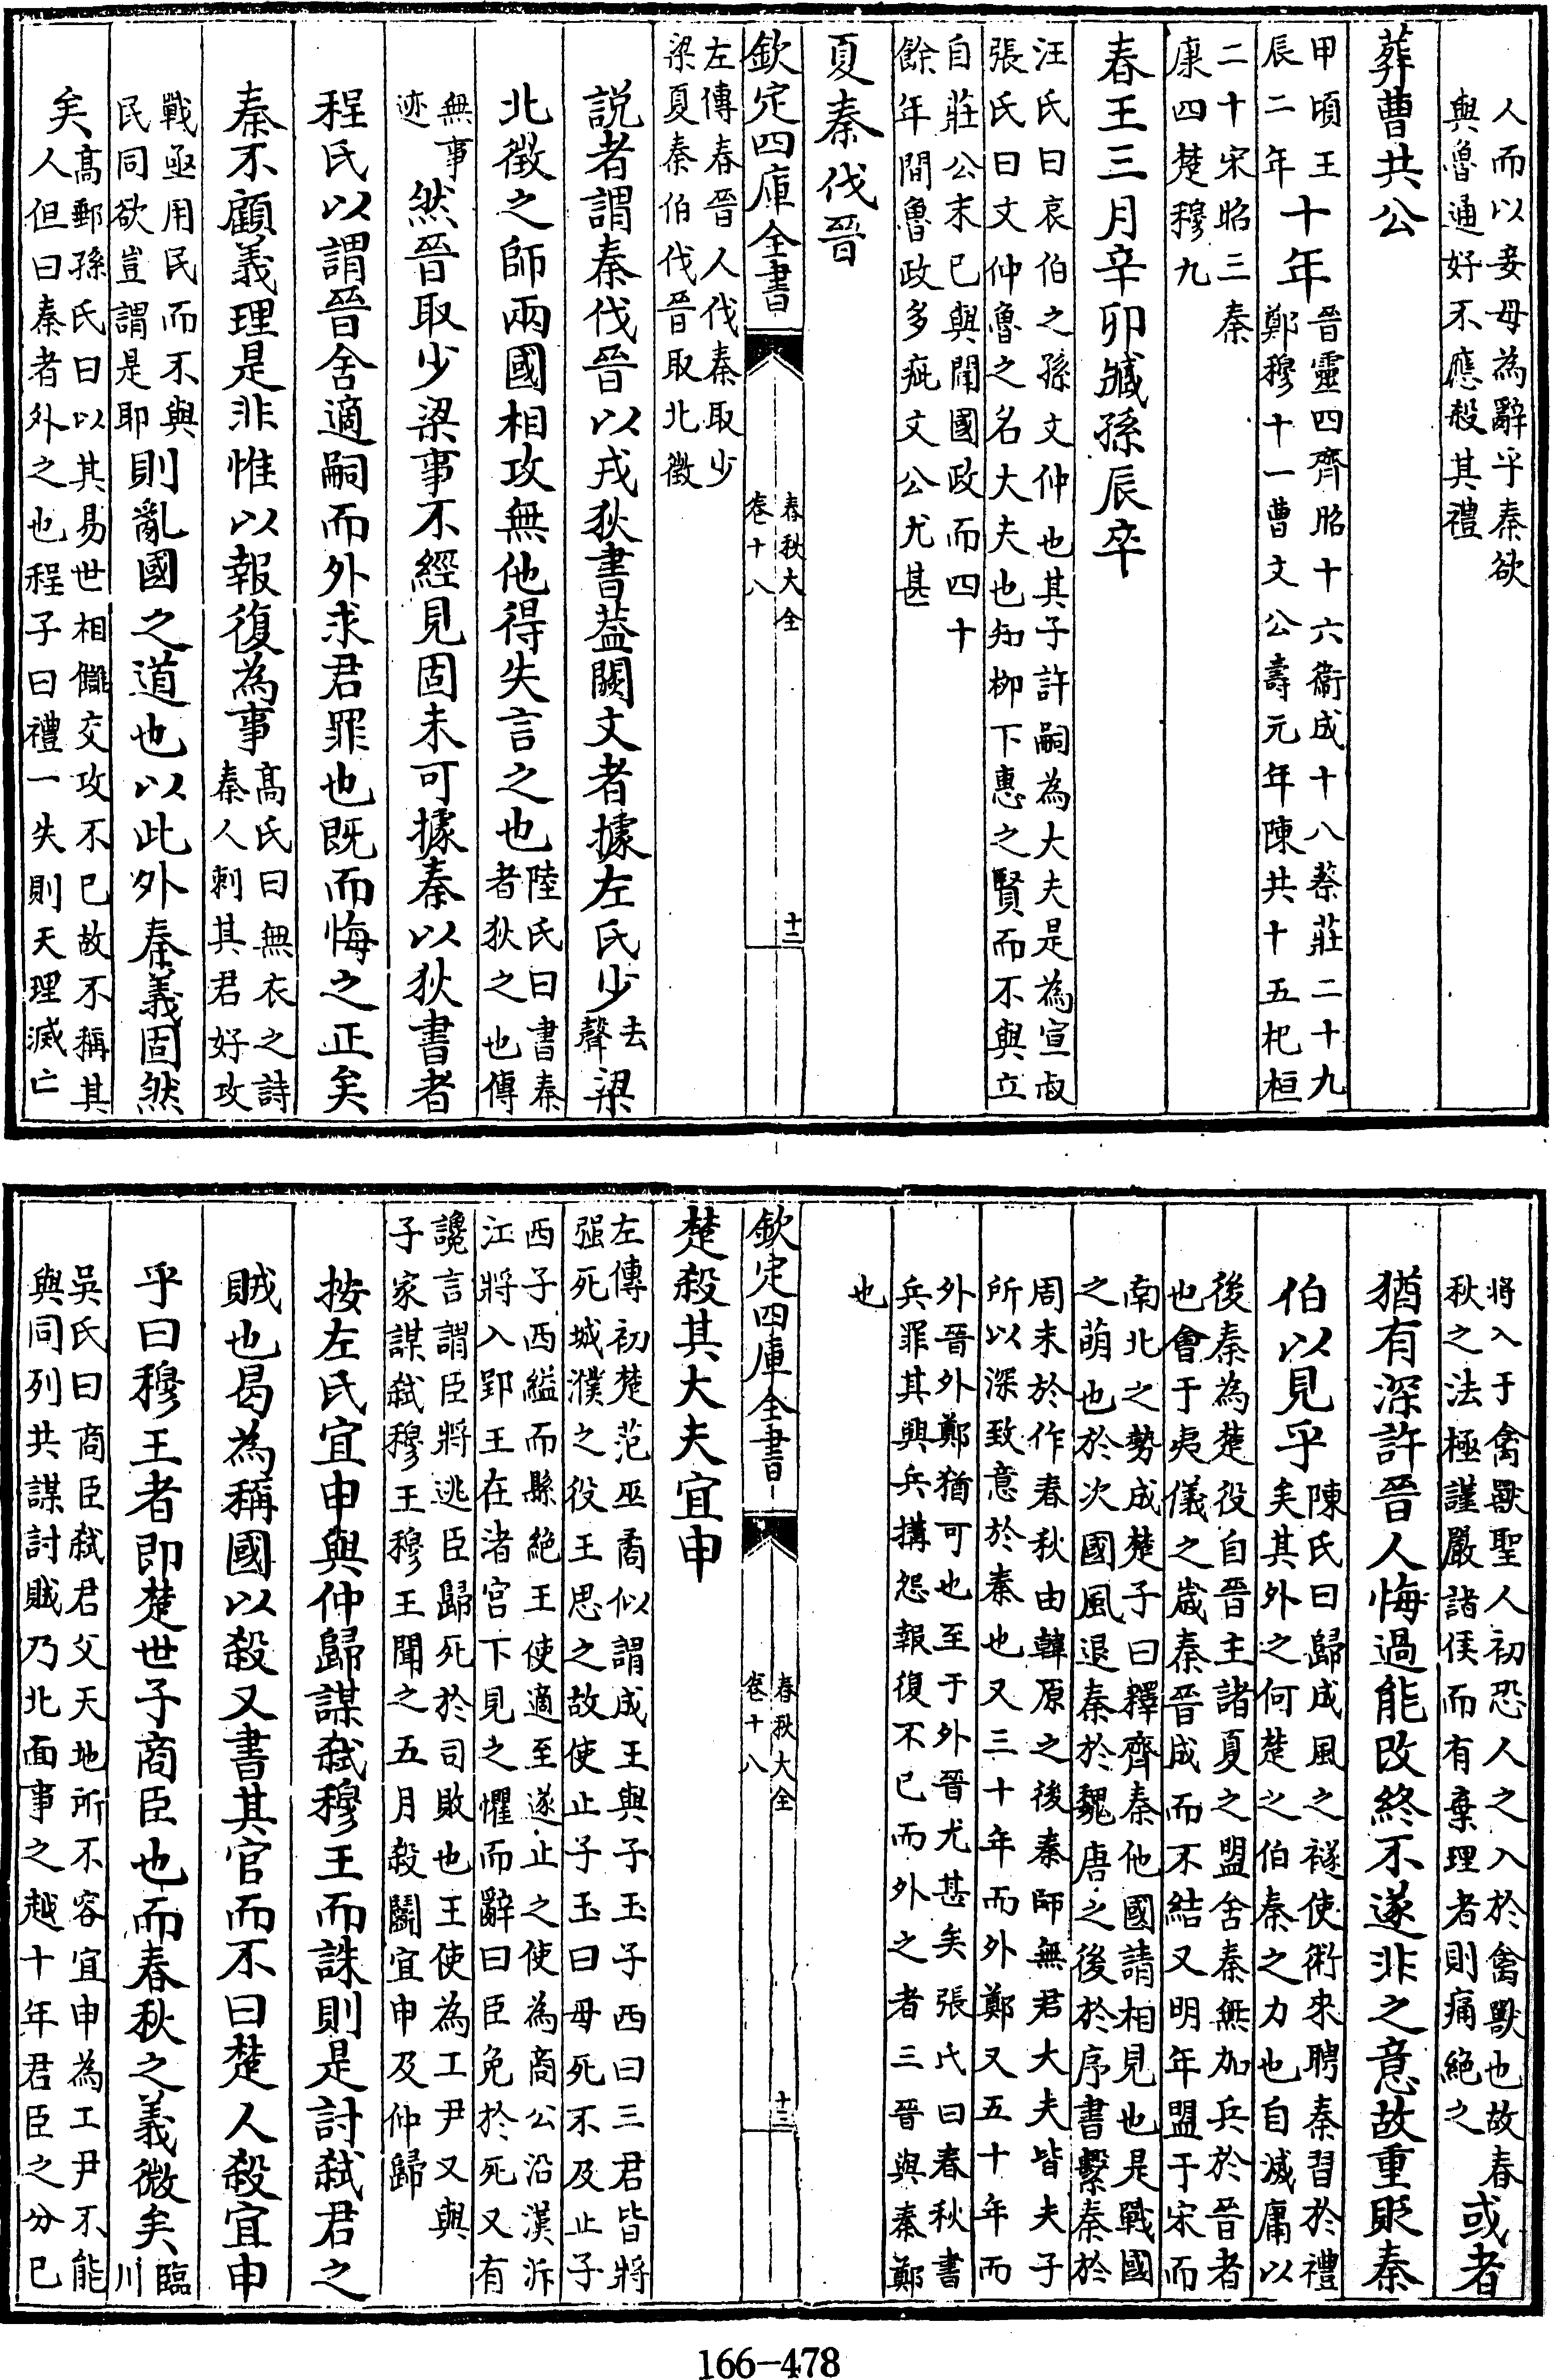 人而以妾母為辭乎秦欲
與魯通好不應殺其禮
葬曹共公
甲頃王
辰二年
十年
晉靈四齊昭十六衛成十八蔡莊二十九
鄭穆十一曹文公壽元年陳共十五杞桓
二十宋昭三秦
康四楚穆九
春王三月辛卯臧孫辰卒
汪氏曰哀伯之孫文仲也其子許嗣為大夫是為宣叔
張氏曰文仲魯之名大夫也知柳下惠之賢而不與立
自莊公末已與聞國政而四十
餘年間魯政多疵文公尤甚
夏秦伐晉
欽定四庫全書
春秋大全
卷十八
十二
左傳春晉人伐秦取少
梁夏秦伯伐晉取北徵
説者謂秦伐晉以戎狄書葢闕文者據左氏少
去
聲
梁
北徵之師兩國相攻無他得失言之也
陸氏曰書秦
者狄之也傳
無事
迹
然晉取少梁事不經見固未可據秦以狄書者
程氏以謂晉舍適嗣而外求君罪也既而悔之正矣
秦不顧義理是非惟以報復為事
髙氏曰無衣之詩
秦人刺其君好攻
戰亟用民而不與
民同欲豈謂是耶
則亂國之道也以此外秦義固然
矣
髙郵孫氏曰以其易世相讎交攻不已故不稱其
人但曰秦者外之也程子曰禮一失則天理滅亡
將入于禽獸聖人初恐人之入於禽獸也故春
秋之法極謹嚴諸侯而有棄理者則痛絶之
或者
猶有深許晉人悔過能改終不遂非之意故重貶秦
伯以見乎
陳氏曰歸成風之襚使術來聘秦習於禮
矣其外之何楚之伯秦之力也自滅庸以
後秦為楚役自晉主諸夏之盟舍秦無加兵於晉者
也會于夷儀之嵗秦晉成而不結又明年盟于宋而
南北之勢成楚子曰釋齊秦他國請相見也是戰國
之萌也於次國風退秦於魏唐之後於序書繫秦於
周末於作春秋由韓原之後秦師無君大夫皆夫子
所以深致意於秦也又三十年而外鄭又五十年而
外晉外鄭猶可也至于外晉尤甚矣張氏曰春秋書
兵罪其興兵搆怨報復不已而外之者三晉與秦鄭
也
欽定四庫全書
春秋大全
卷十八
十三
楚殺其大夫宜申
左傳初楚范巫矞似謂成王與子玉子西曰三君皆將
强死城濮之役王思之故使止子玉曰毋死不及止子
西子西縊而縣絶王使適至遂止之使為商公沿漢泝
江將入郢王在渚宫下見之懼而辭曰臣免於死又有
讒言謂臣將逃臣歸死於司敗也王使為工尹又與
子家謀弑穆王穆王聞之五月殺鬬宜申及仲歸
按左氏宜申與仲歸謀弑穆王而誅則是討弑君之
賊也曷為稱國以殺又書其官而不曰楚人殺宜申
乎曰穆王者即楚世子商臣也而春秋之義微矣
臨
川
吳氏曰商臣弑君父天地所不容宜申為工尹不能
與同列共謀討賊乃北面事之越十年君臣之分已
166-478